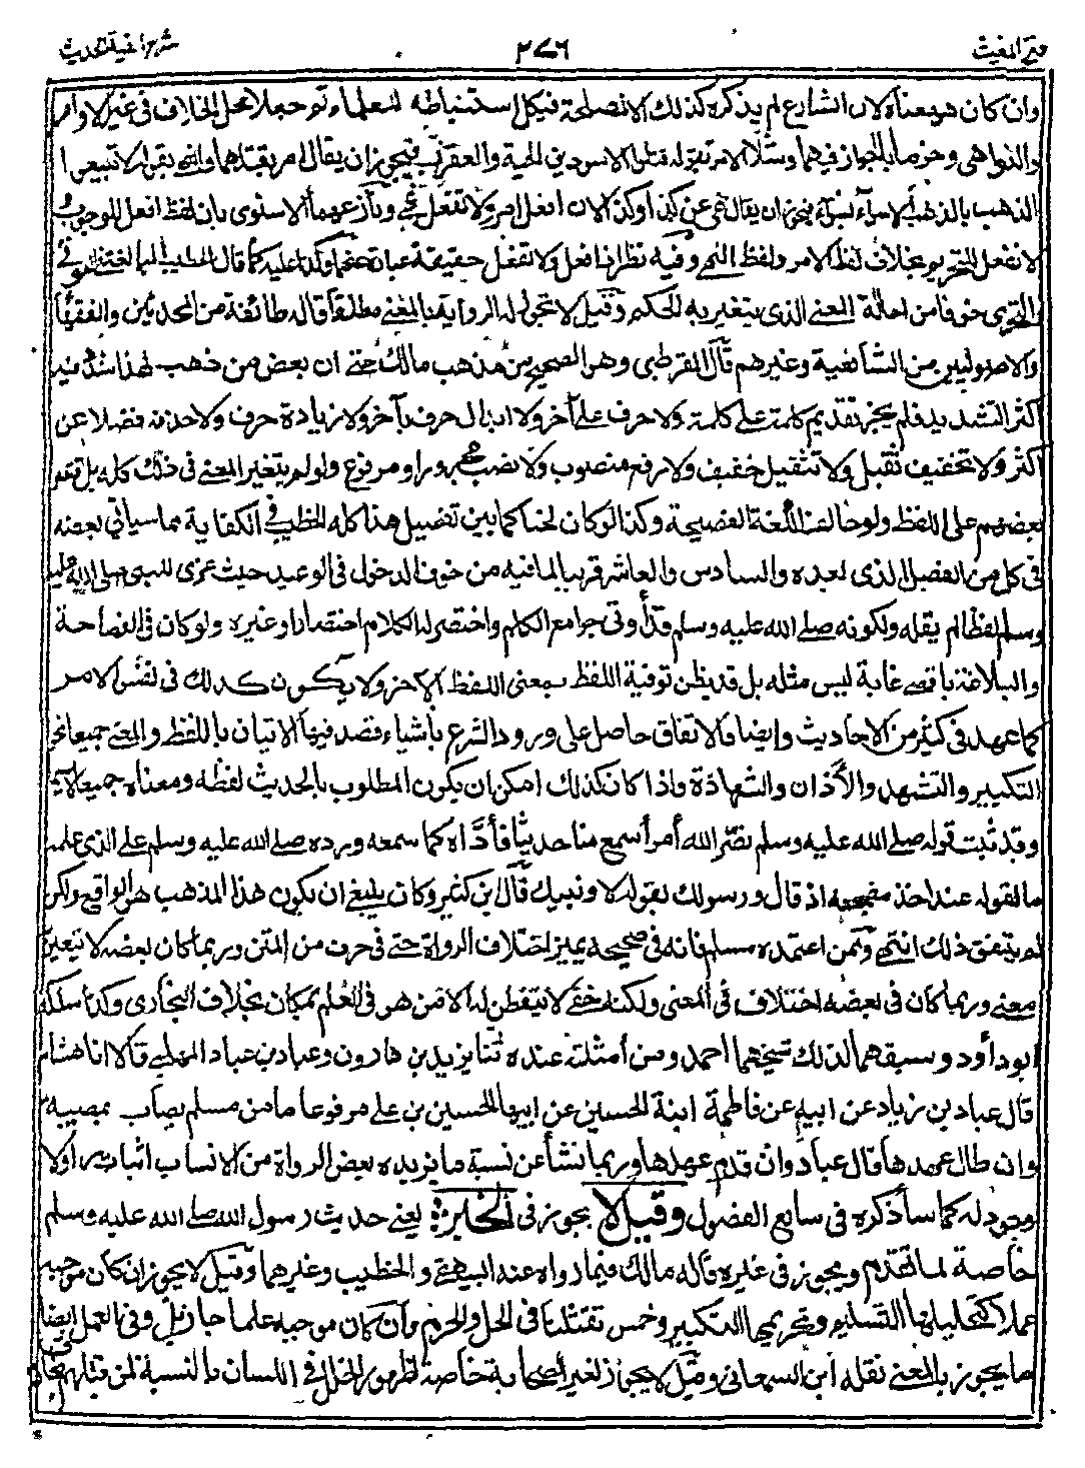 فتح المغيث ٢٧٦ شرح الفية الحديث
وان كان هو معناه لان الشارع لم يذكره كذلك الا لمصلحة فيكل استنباطه للعلماء ثم جعلا محل الخلاف في غير الاوامر
والنواهي وجزما بالجواز فيهما ومثلا الامر بقوله اقتلوا الاسودين الحية والعقرب فيجوز ان يقال امر بقتلهما والنهي بقوله لا تبيعوا
الذهب بالذهب الا سواء بسواء فيجوز ان يقال نهى عن كذا وكذا لان افعل امر ولا تفعل نهي ونازعهما الاسنوي بان لفظ افعل للوجوب و
لا تفعل للتحريم بخلاف لفظ الامر ولفظ النهي وفيه نظر فافعل ولا تفعل حقيقة عبارة عنهما وكذا عليه كما قال الخطيب المبالغة في التوقي
والتحري خوفا من احالة المعنى الذي يتغير به الحكم وقيل لا تجوز له الرواية بالمعنى مطلقا قاله طائفة من المحدثين والفقهاء
والاصوليين من الشافعية وغيرهم قال القرطبي وهو الصحيح من مذهب مالك حتى ان بعض من ذهب لهذا شدد فيه
اكثر التشديد فلم يجز تقديم كلمة على كلمة ولا حرف على آخر ولا ابدال حرف بآخر ولا زيادة حرف ولا حذفه فضلا عن
اكثر ولا تخفيف ثقيل ولا تثقيل خفيف ولا رفع منصوب ولا نصب مجرور او مرفوع ولو لم يتغير المعنى في ذلك كله بل اقتصر
بعضهم على اللفظ ولو خالف اللغة الفصيحة وكذا لو كان لحنا كما بين تفصيل هذا كله الخطيب في الكفاية مما سيأتي بعضه
في كل من الفصل الذي بعده والسادس والعاشر قريبا لما فيه من خوف الدخول في الوعيد حيث عزى للنبي صلى الله عليه
وسلم لفظا لم يقله ولكونه صلى الله عليه وسلم قد أوتي جوامع الكلم واختصر له الكلام اختصارا وغيره ولو كان في الفصاحة
والبلاغة باقصى غاية ليس مثله بل قد يظن توفية اللفظ بمعنى اللفظ الآخر ولا يكون كذلك في نفس الامر
كما عهد في كثير من الاحاديث وايضا فالاتفاق حاصل على ورود الشرع بأشياء قصد فيها الاتيان باللفظ والمعنى جميعا نحو
التكبير والتشهد والأذان والشهادة واذا كان كذلك امكن ان يكون المطلوب بالحديث لفظه ومعناه جميعا لاسيما
وقد ثبت قوله صلى الله عليه وسلم نضر الله أمرأ سمع منا حديثا فأداه كما سمعه ورده صلى الله عليه وسلم على الذي علمه
ما يقوله عند اخذ مضجعه اذ قال ورسولك بقوله لا ونبيك قال ابن كثير وكان ينبغي ان يكون هذا المذهب هو الواقع ولكن
لم يتفق ذلك انتهى وممن اعتمده مسلم فانه في صحيحه يميز اختلاف الرواة حتى في حرف من المتن وربما كان بعضه لا يتغير به
معنى وربما كان في بعضه اختلاف في المعنى ولكنه خفي لا يتفطن له الا من هو في العلم بمكان بخلاف البخاري وكذا سلكه
ابو دأود وسبقهما لذلك شيخهما احمد ومن أمثلته عنده ثنا يزيد بن هارون وعباد بن عباد المهلبي قالا انا هشام
قال عباد بن زياد عن ابيه عن فاطمة ابنة الحسين عن ابيها الحسين بن علي مرفوعا ما من مسلم يصاب بمصيبة
وان طال عهدها قال عباد وان قدم عهدها وربما نشأ عن نسبة ما يزيده بعض الرواة من الانساب اثباته راو لا
وجود له كما سأذكره في سابع الفصول وقيل لا يجوز في الخبر: يعني حديث رسول الله صلى الله عليه وسلم
خاصة لما تقدم ويجوز في غيره قاله مالك فيما رواه عنه البيهقي والخطيب وغيرهما وقيل لا يجوز ان كان موجبه
عملا كتحليلها التسليم وتحريمها التكبير وخمس يقتلن في الحل والحرم وان كان موجبه علما جاز بل وفي العمل ايضا
ما يجوز بالمعنى نقله ابن السمعاني وقيل لا يجوز لغير الصحابة خاصة لظهور الخلل في اللسان بالنسبة لمن قبلهم